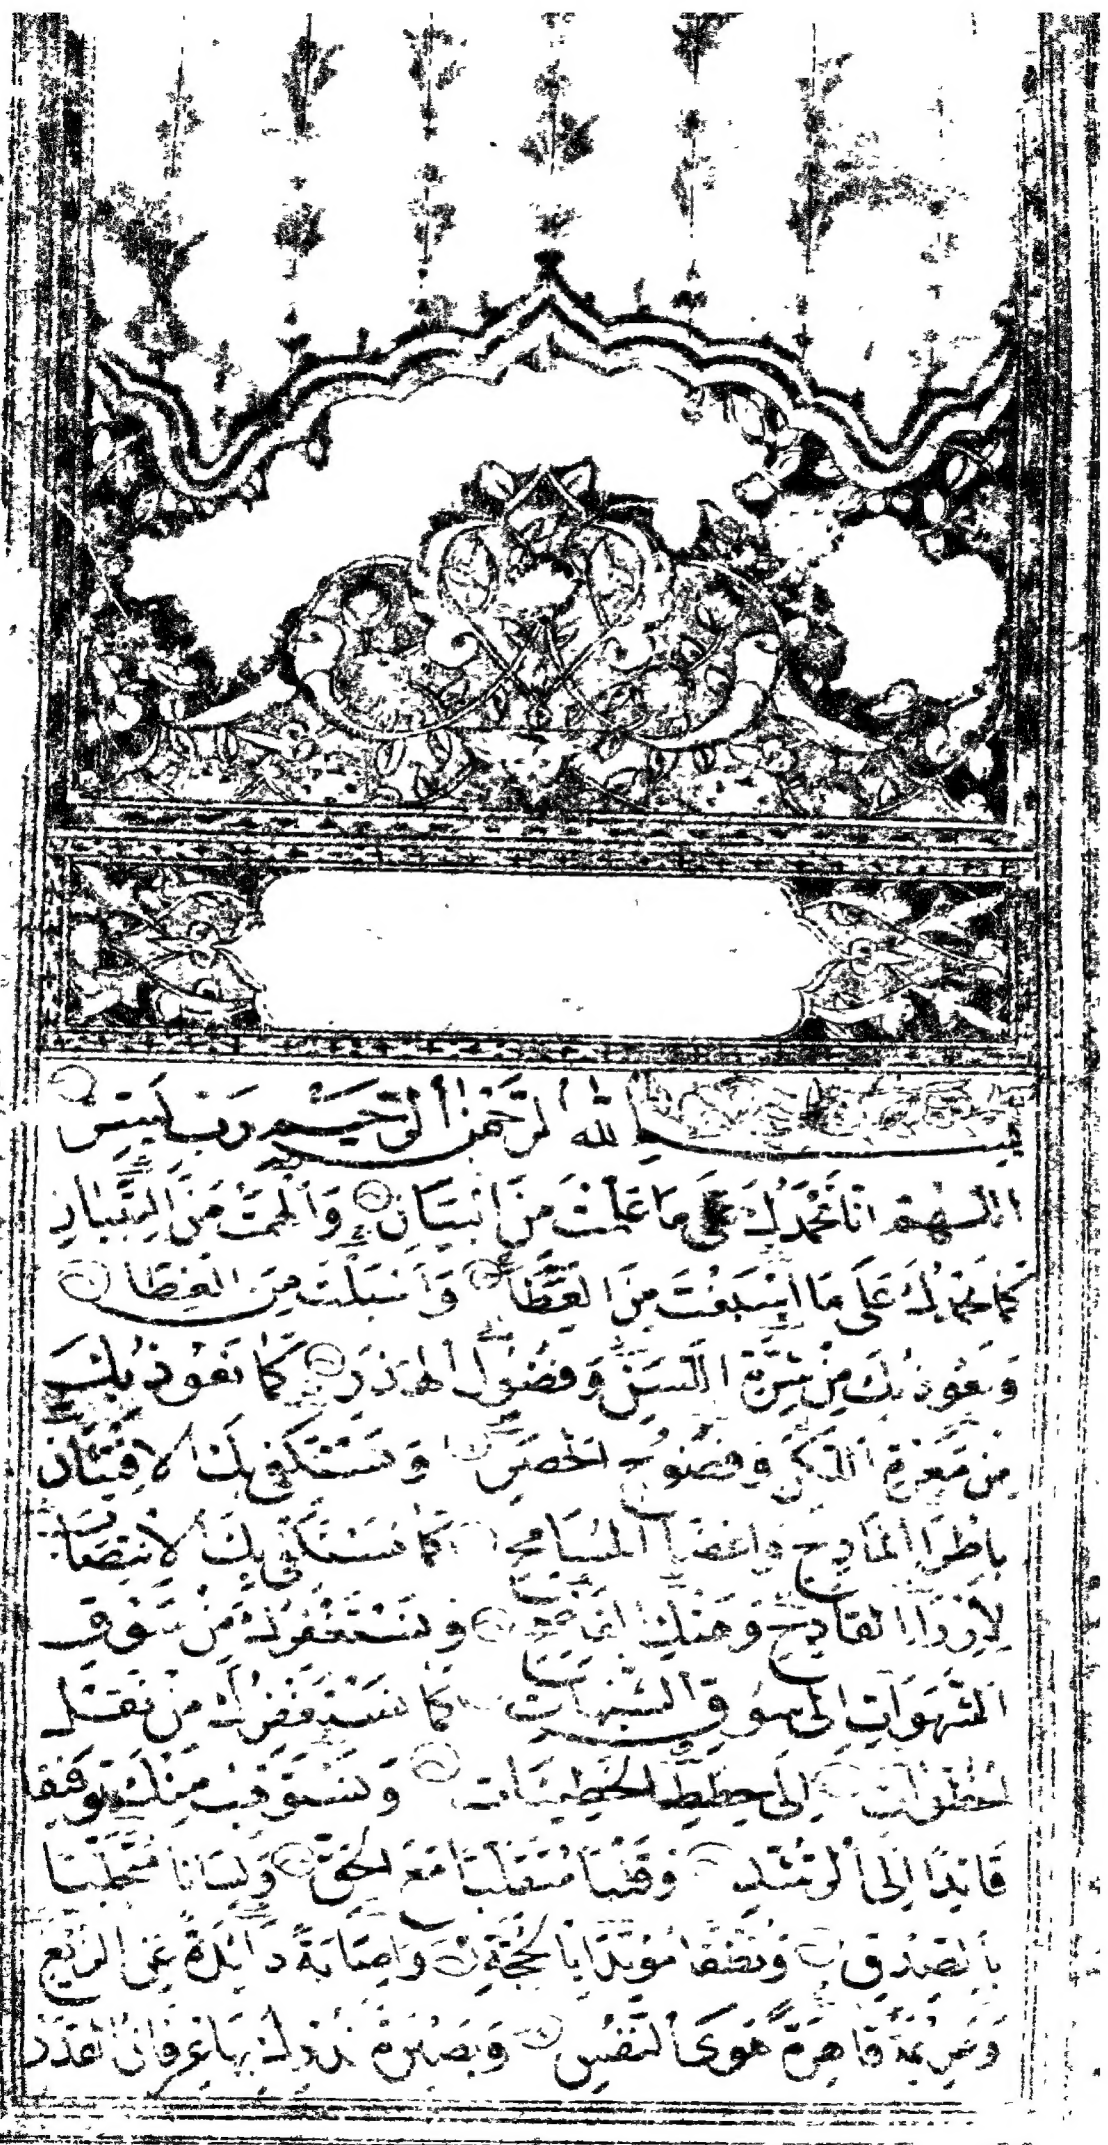 بسم الله الرحمن الرحيم رب يسر
اللهم انا نحمدك على ما علمت من البيان والهمت من التبيان
كما نحمدك على ما اسبغت من العطا واسبلت من الغطا
ونعوذ بك من شرة اللسن وفضول الهذر كما نعوذ بك
من معرة اللكن وفضوح الحصر ونستكفي بك الافتتان
باطرا المادح واغضا المسامح كما نستكفي بك الانتصاب
لازرا القادح وهتك الفاضح ونستغفرك من سوق
الشهوات الى سوق الشبهات كما نستغفرك من نقل
الخطوات الى خطط الخطيئات ونستوهب منك توفيقا
قائدا الى الرشد وقلبا متقلبا مع الحق ولسانا متحليا
بالصدق ونطقا مؤيدا بالحجة واصابة ذائدة عن الزيغ
وعزيمة قاهرة هوى النفس وبصيرة ندرك بها عرفان القدر